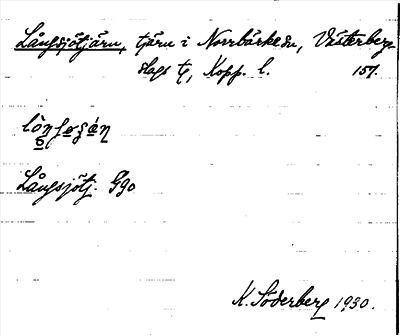 Långsjötjärn, tjärn i Norrbärke sn, Västerbergs-
slags tg, Kopp. l. 157.
Långsjötj. Ggo
K. Söderberg 1930.